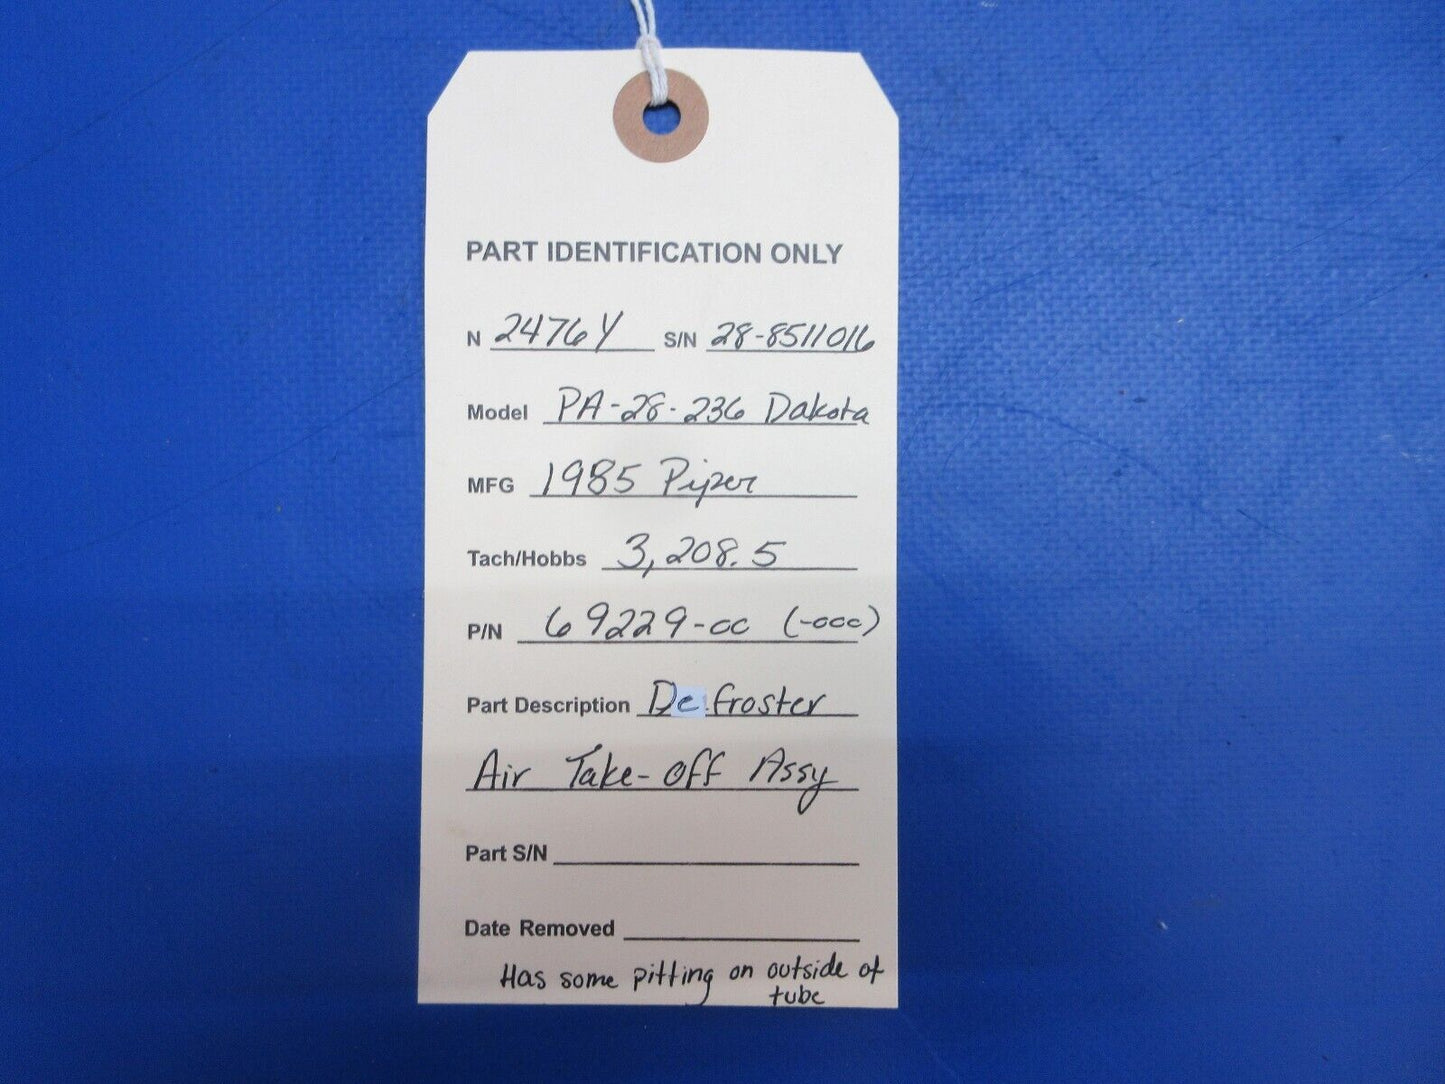 PART IDENTIFICATION ONLY
N 2476Y S/N 28-8511016
Model PA-28-236 Dakota
MFG 1985 Piper
Tach/Hobbs 3,208.5
P/N 69229-00 (-000)
Part Description Defroster
Air Take-off Assy
Part S/N
Date Removed
Has some pitting on outside of
tube